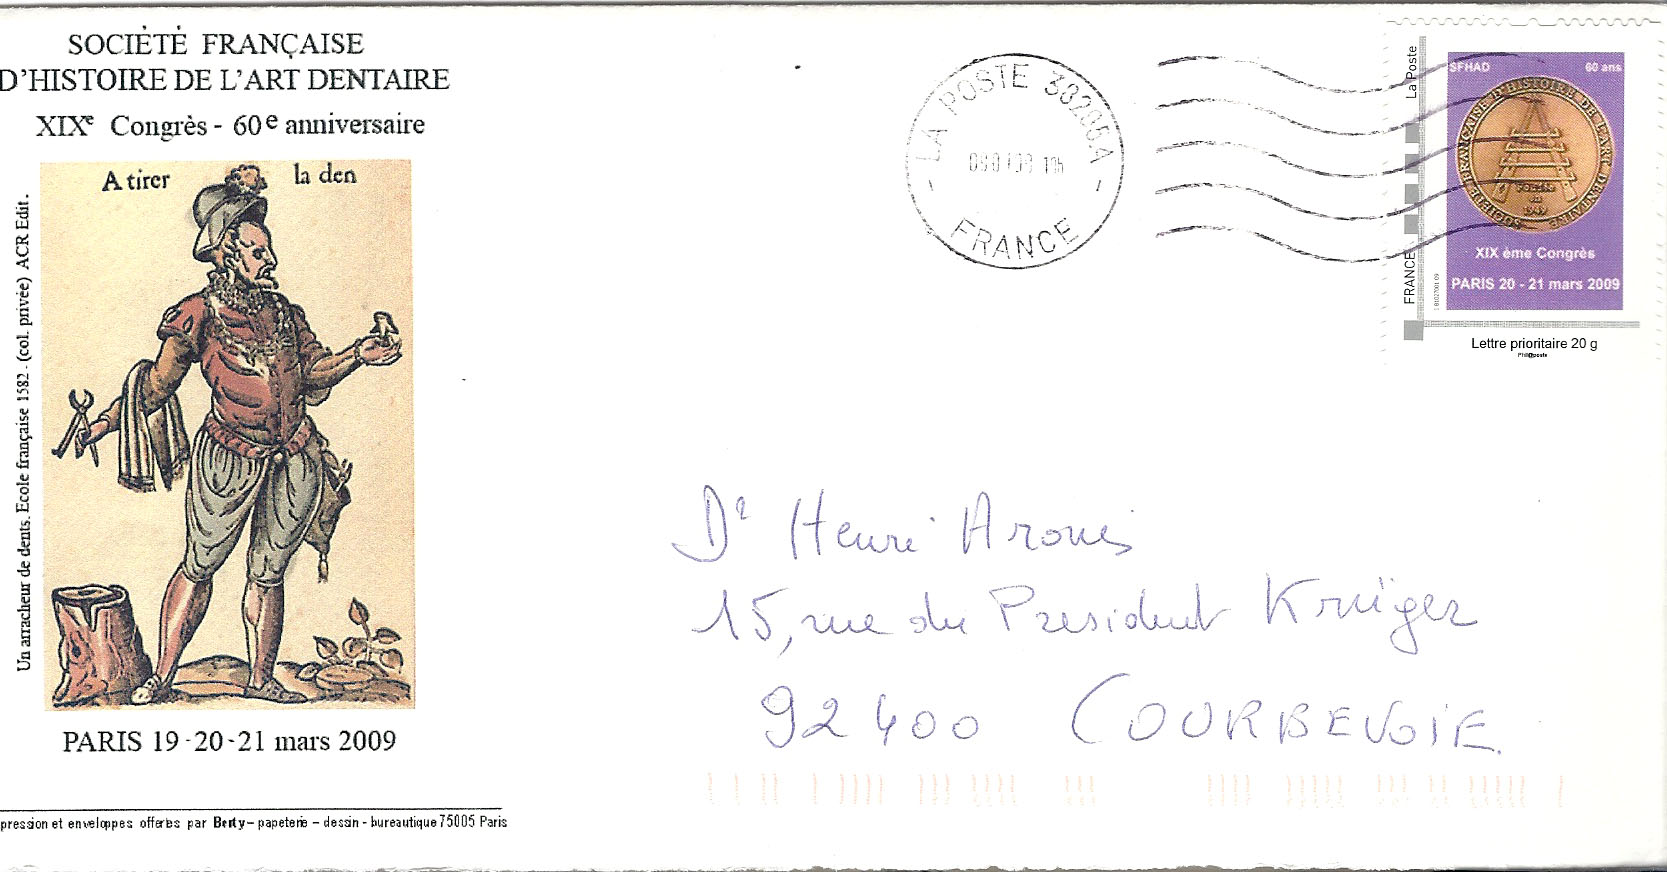 SOCIÉTÉ FRANÇAISE
D'HISTOIRE DE L'ART DENTAIRE
XIXe Congrès - 60e anniversaire
A tirer la den
Un arracheur de dents. Ecole française 1582 - (col. privée) ACR Edit.
PARIS 19-20-21 mars 2009
pression et enveloppes offertes par Berty – papeterie – dessin - bureautique 75005 Paris
LA POSTE 38206A
FRANCE
La Poste
FRANCE
SFHAD 60 ans
SOCIETE FRANÇAISE D'HISTOIRE DE L'ART DENTAIRE
Fondée
en
1949
XIX ème Congrès
PARIS 20 - 21 mars 2009
Lettre prioritaire 20 g
Phil@poste
Dr Henri Aronis
15, rue du President Krüger
92400 COURBEVOIE